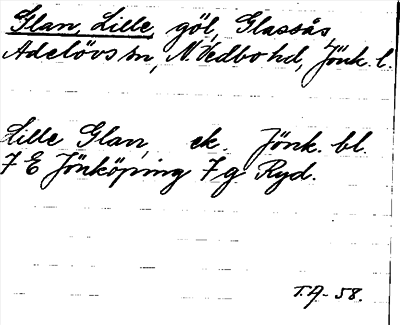 Glan, Lille göl, Glassås,
Adelövs sn, N. Vedbo hd, Jönk. l.
Lille Glan, ek. Jönk. bl.
7 E Jönköping 7 g Ryd.
T.A. - 58.